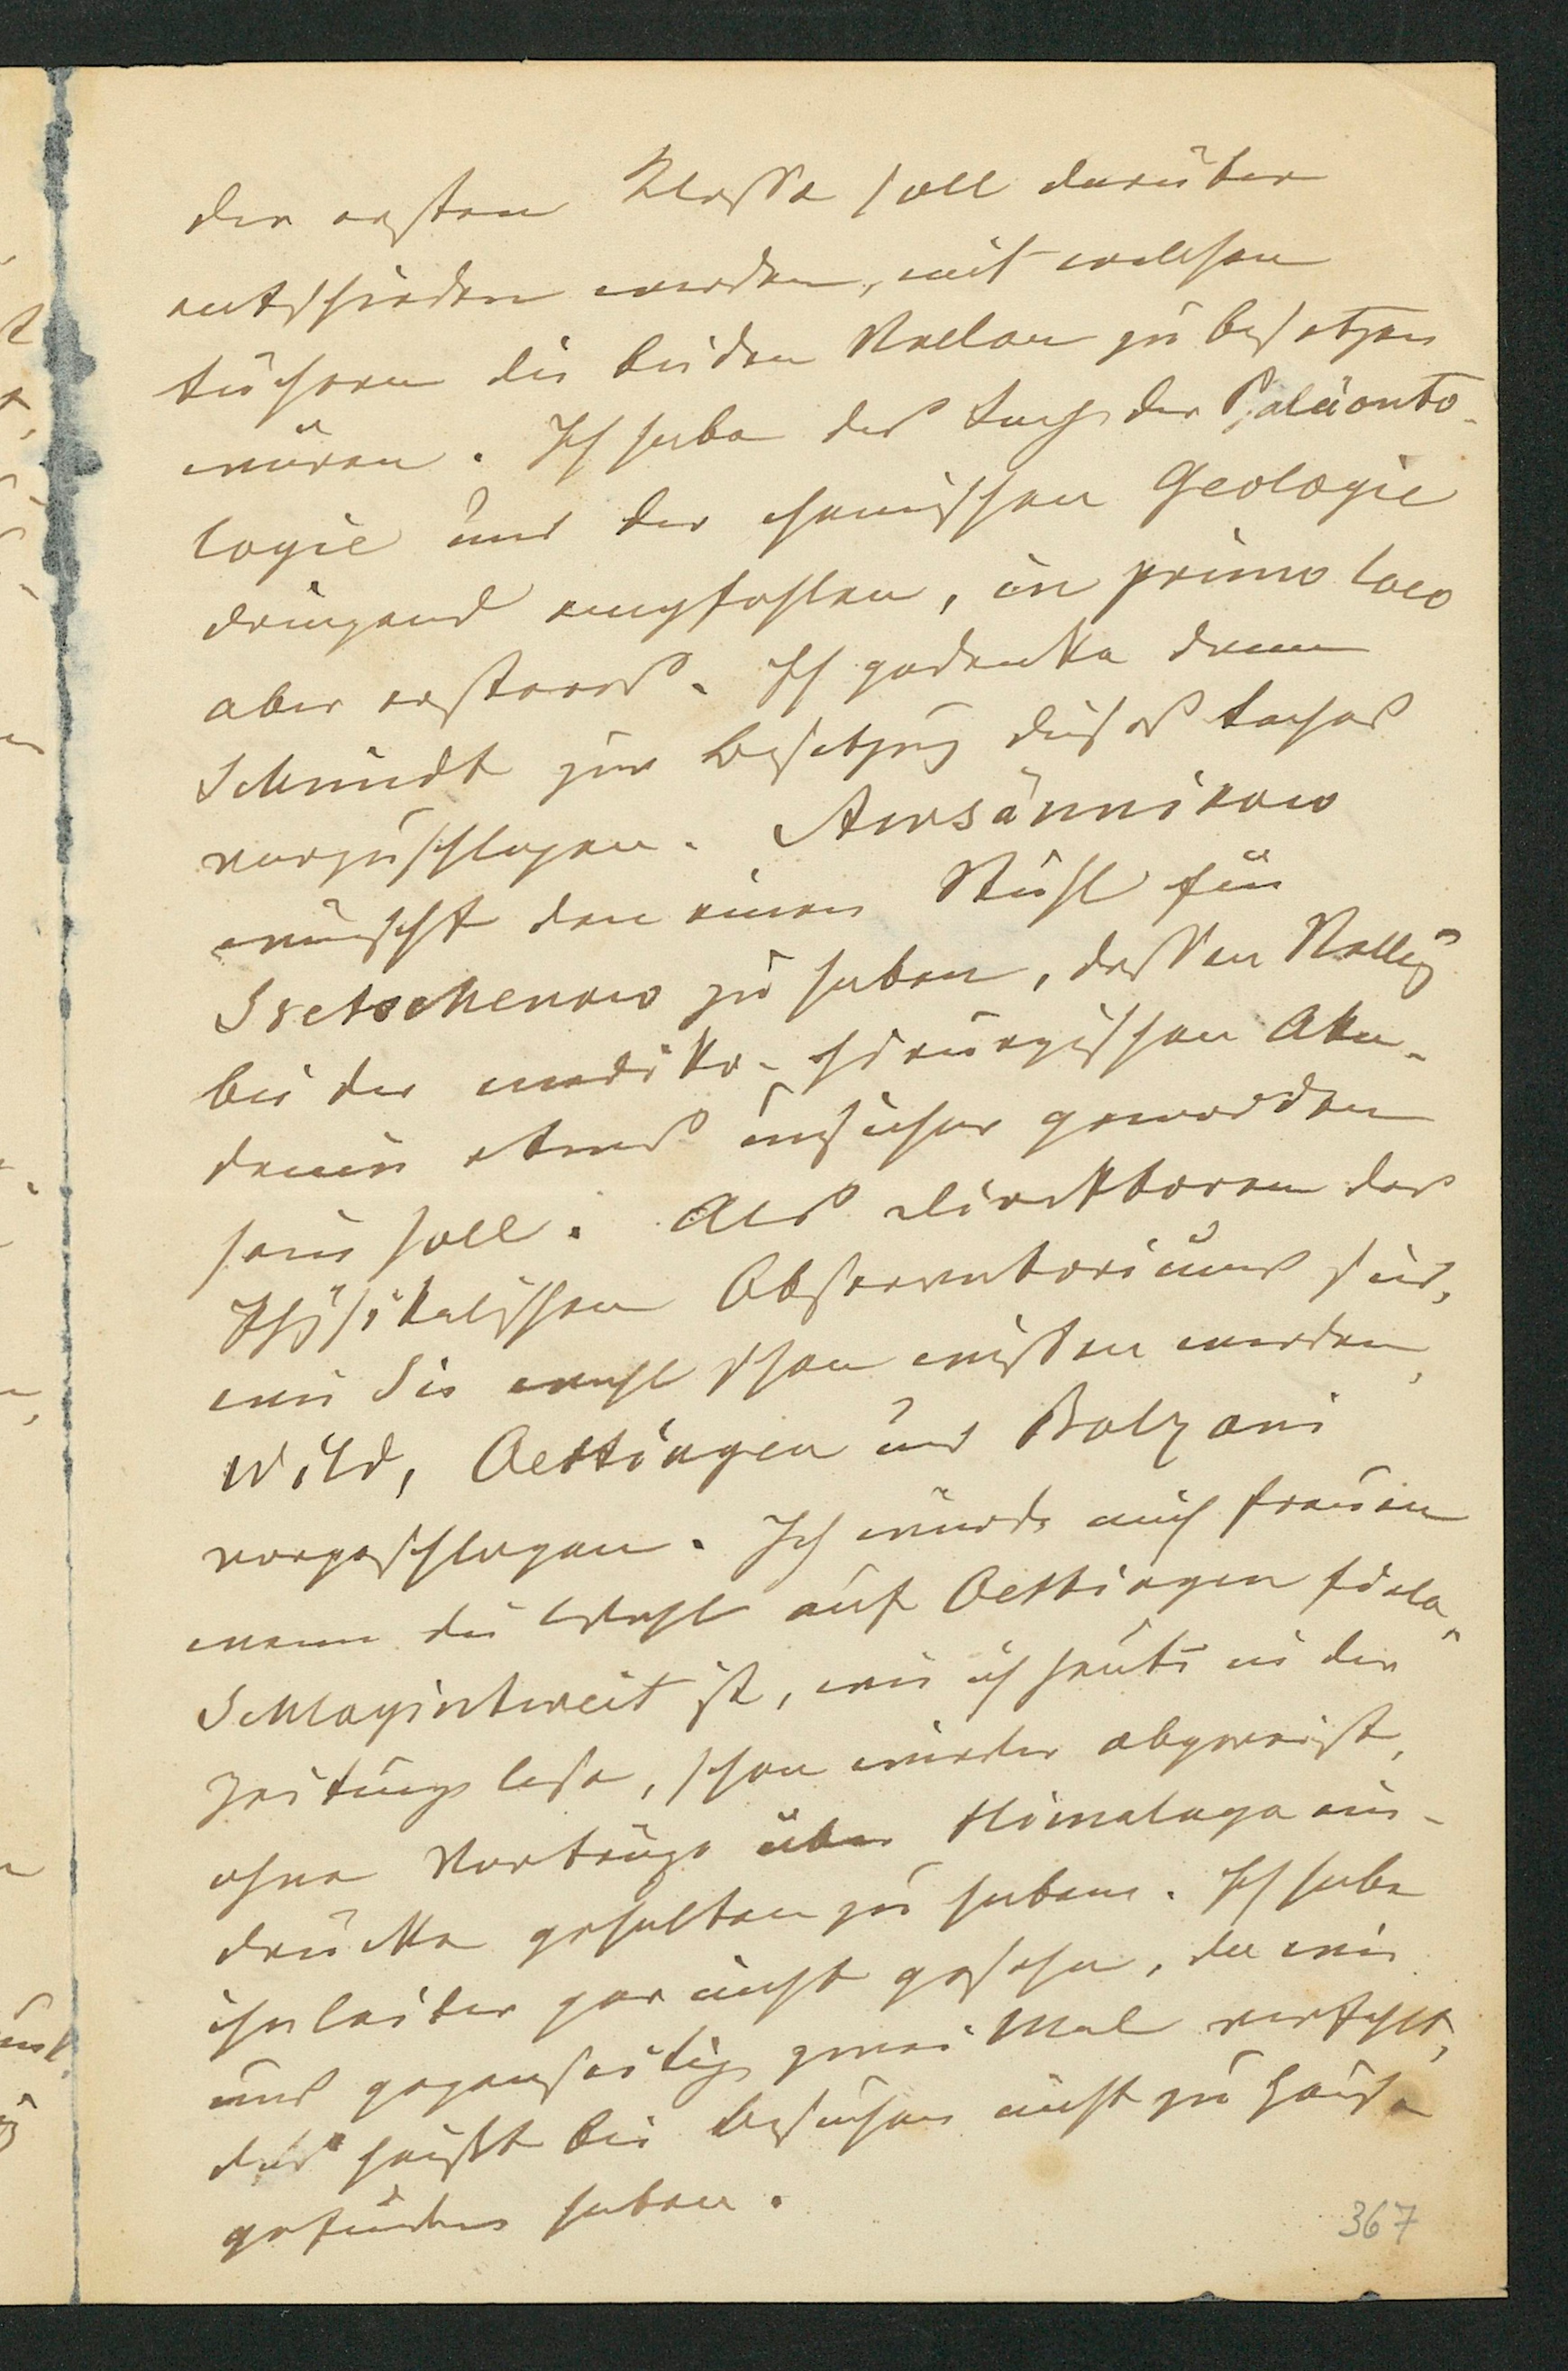 der ersten Klasse soll darüber
entschieden werden, mit welchen
Fächern die beiden Stellen zu besetzen
wären. Ich habe das Fach der Paläonto-
logie und der chemischen Geologie
dringend empfohlen, in primo loco
aber ersteres. Ich gedenke dann
Schmidt zur Besetzung dieses Faches
vorzuschlagen. Awsännikow
wünscht den einen Stuhl für
Ssetschenow zu haben, dessen Stellung
bei der mediko-chirurgischen Aka-
demie etwas unsicher geworden
sein soll. Als Direktoren des
Physikalischen Observatoriums sind,
wie Sie wohl schon wissen werden,
Wild, Oettingen und Bolzani
vorgeschlagen. Ich würde mich freuen
wenn die Wahl auf Oettingen fiele.
Schlagintweit ist, wie ich heute in der
Zeitung lese, schon wieder abgereist,
ohne Vorträge über Himalaya ein-
drücke gehalten zu haben. Ich habe
ihn leider gar nicht gesehen, da wir
uns gegenseitig zwei Mal verfehlt,
das heißt bei Besuchen nicht zu Hause
gefunden haben.
367